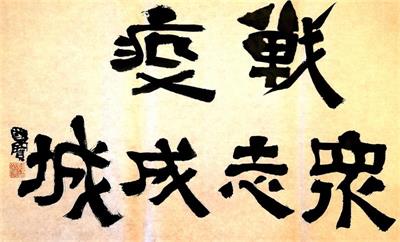 戰疫
眾志成城